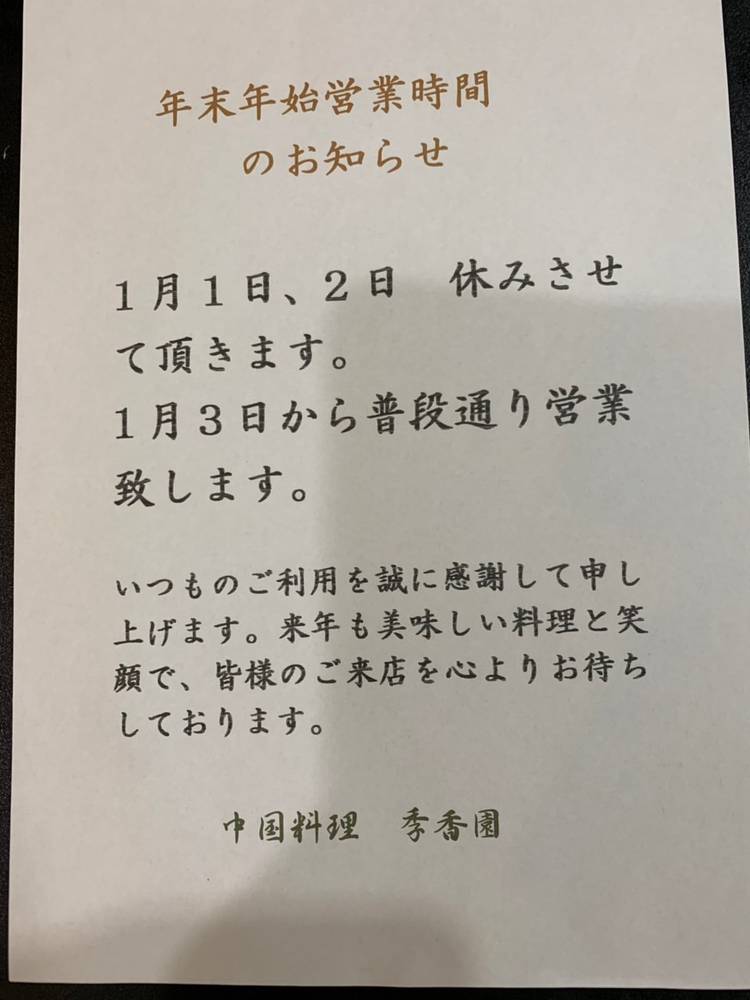 年末年始営業時間
のお知らせ
1月1日、2日　休みさせ
て頂きます。
1月3日から普段通り営業
致します。
いつものご利用を誠に感謝して申し
上げます。来年も美味しい料理と笑
顔で、皆様のご来店を心よりお待ち
しております。
中国料理　季香園